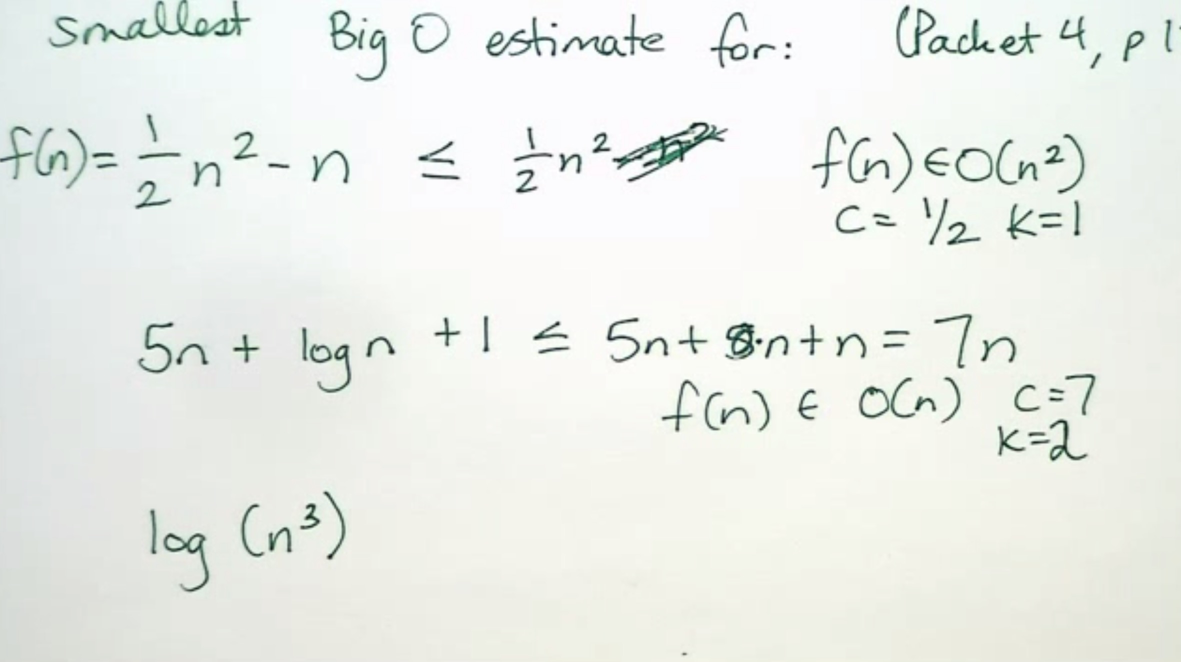 Smallest Big O estimate for: (Packet 4, p 1
f(n) = 1/2 n² - n ≤ 1/2 n² f(n) ∈ O(n²)
c = 1/2 k=1
5n + log n + 1 ≤ 5n + n + n = 7n
f(n) ∈ O(n) c=7
k=2
log (n³)